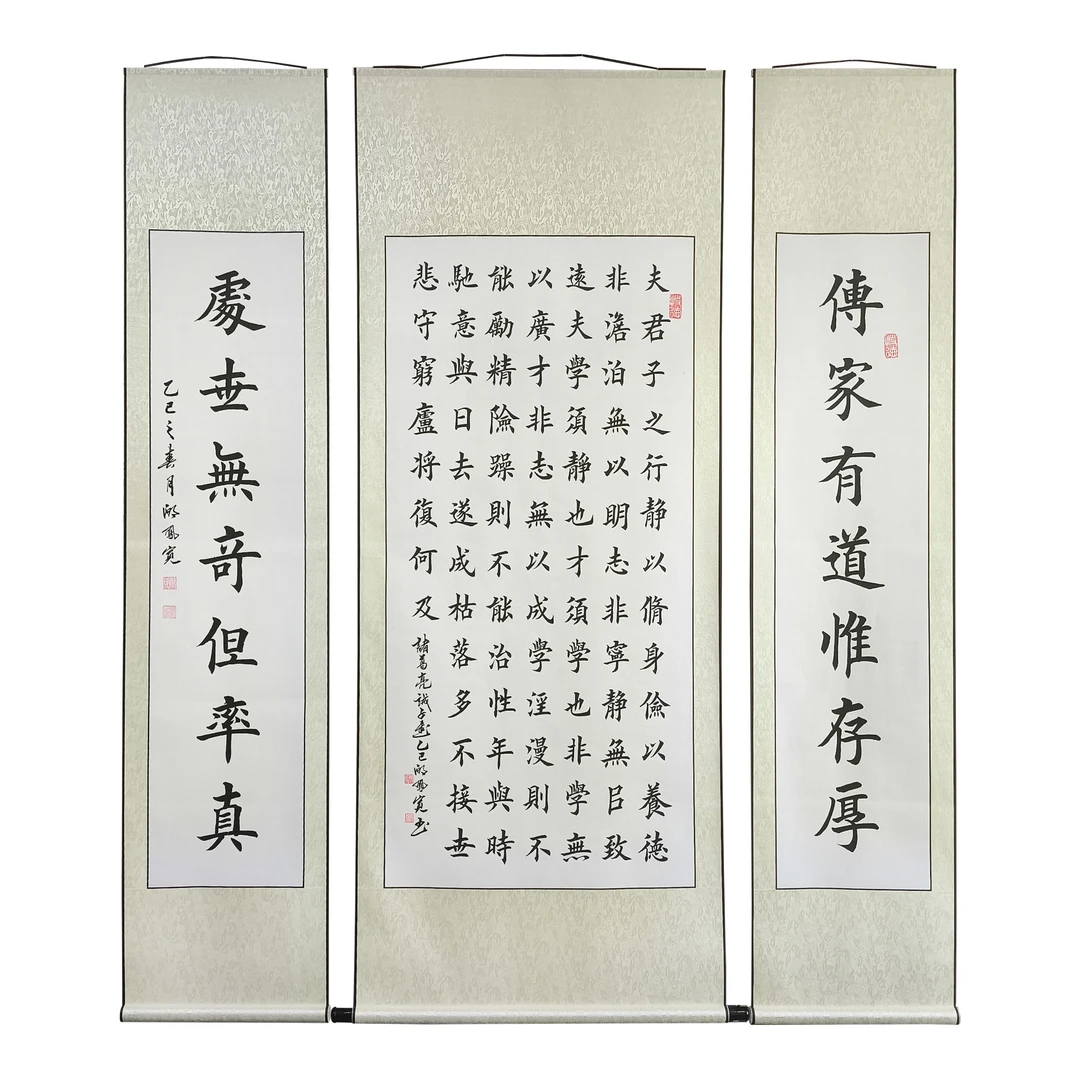 傳家有道惟存厚
夫君子之行静以脩身儉以養德
非澹泊無以明志非寧静無㠯致
遠夫學須静也才須學也非學無
以廣才非志無以成學淫漫則不
能勵精險躁則不能治性年與時
馳意與日去遂成枯落多不接世
悲守窮廬将復何及
諸葛亮誡子 乙巳 鳳寬书
處世無奇但率真
乙巳之春月 鳳寬